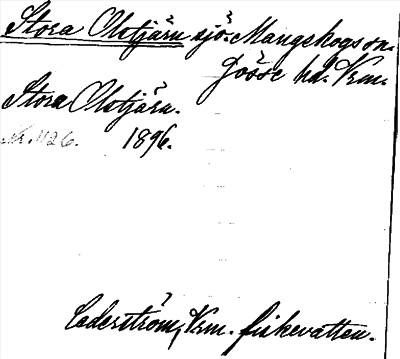 Stora Olstjärn sjö. Mangskogs sn.
Jösse hd. Vrm.
Stora Olstjärn.
Nr. 1126. 1896.
Cederström, Vrm. fiskevatten.